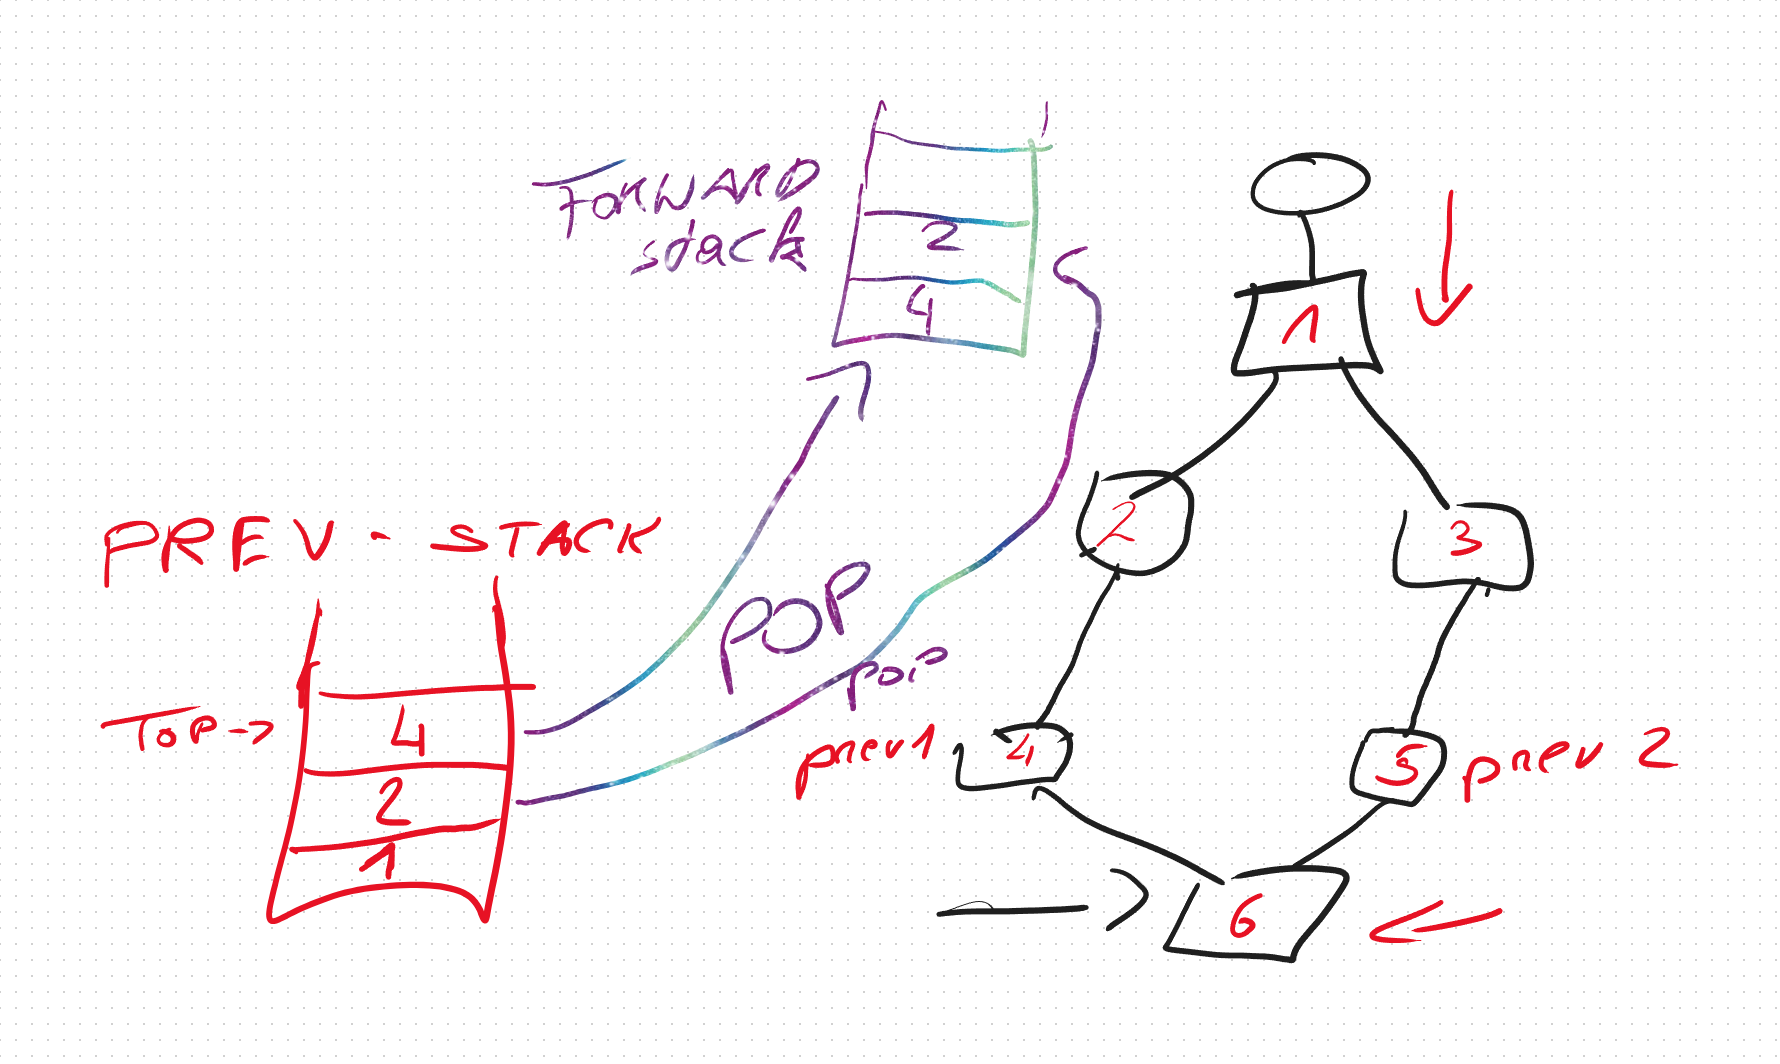 FORWARD
stack
2
4
PREV - STACK
TOP ->
4
2
1
POP
POP
1
2
3
prev1
4
5
prev 2
6